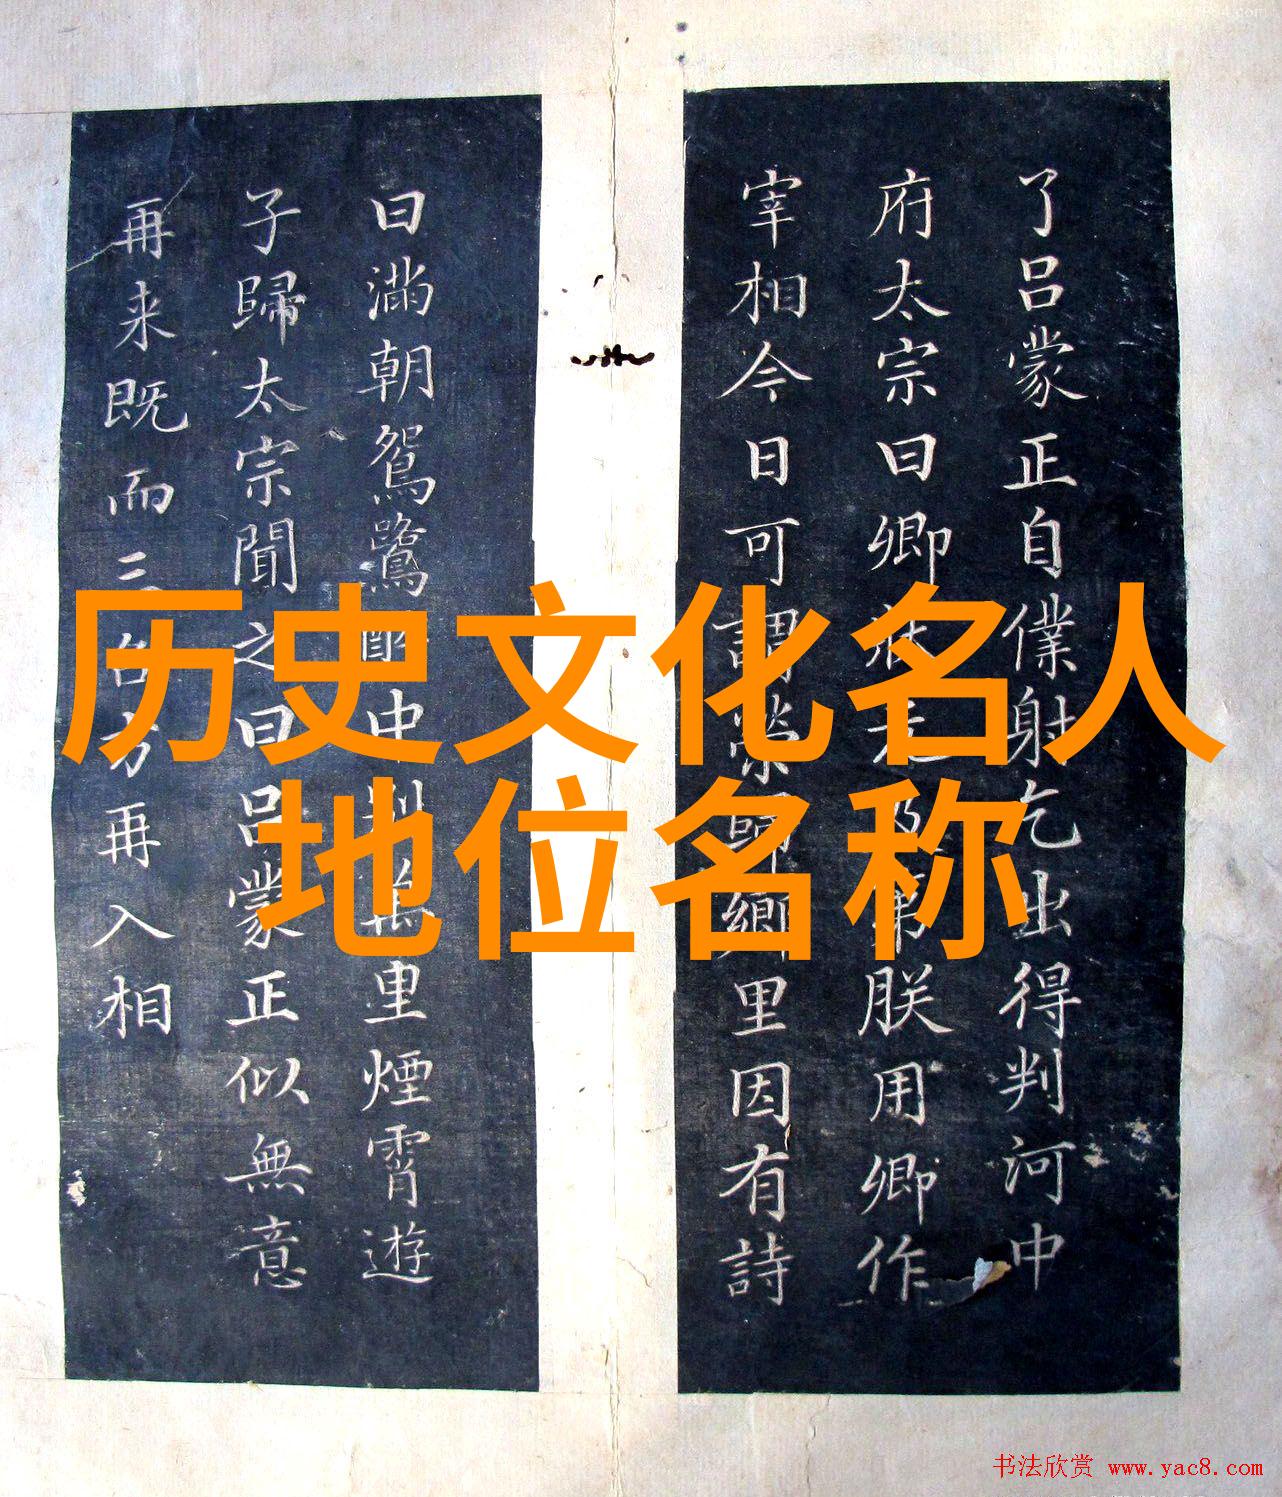 了吕蒙正自僕射乞出得判河中
府太宗曰卿狀元及第朕用卿作
宰相今日可謂榮歸鄉里因有詩
曰满朝鴛鷺醉中別萬里煙霄遊
子歸太宗聞之曰吕蒙正似無意
再来既而三台方再入相
历史文化名人
地位名称
书法欣赏 www.yac8.com